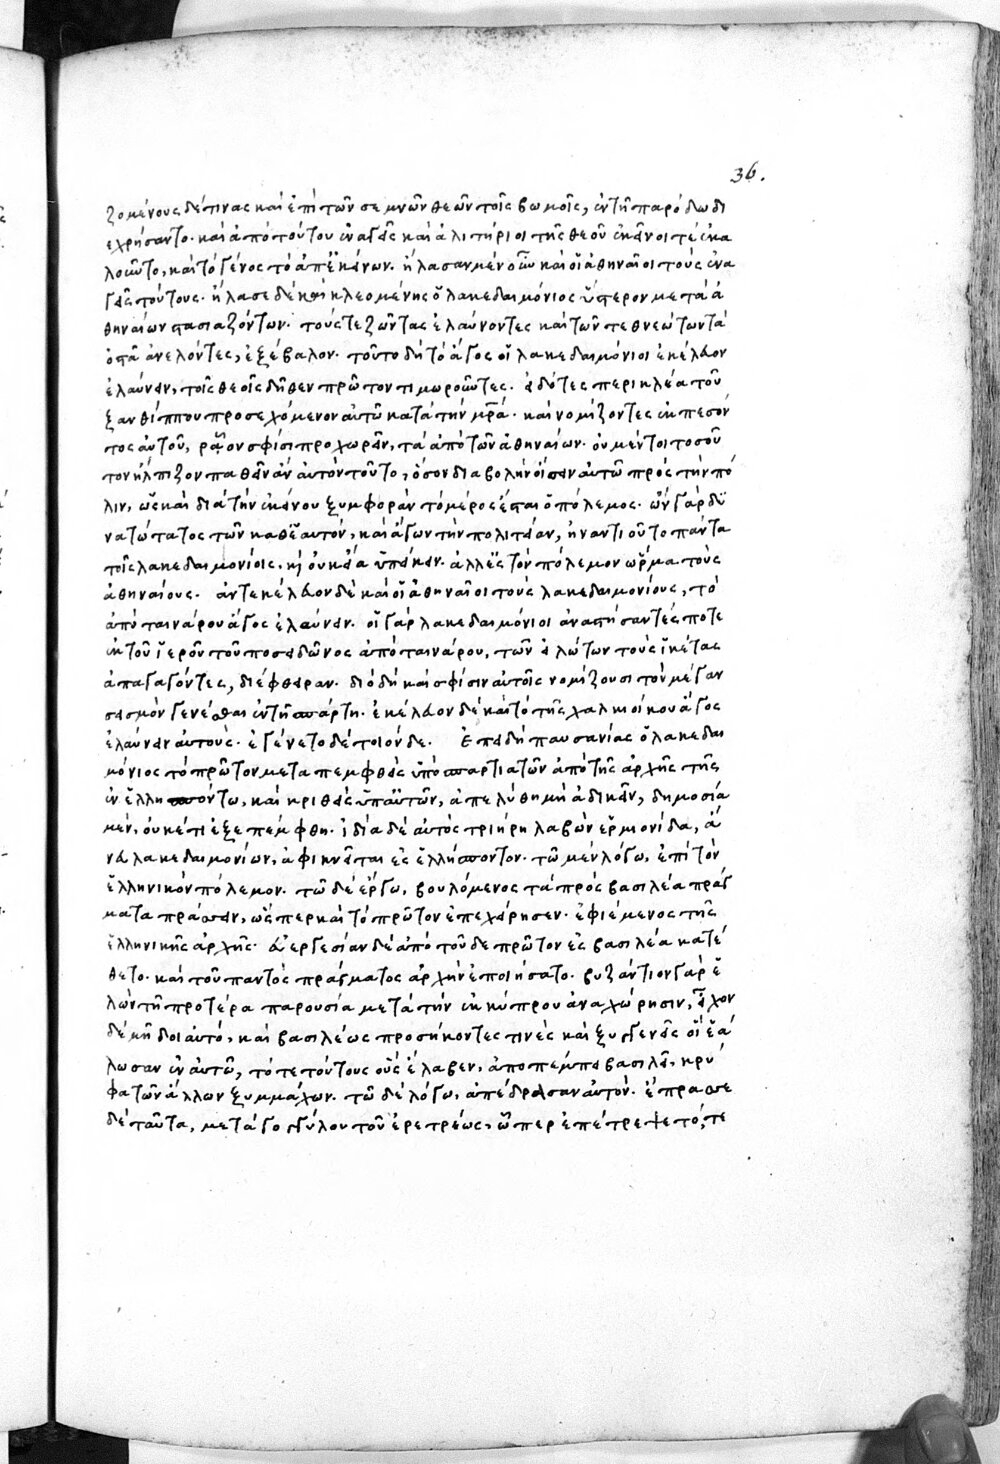 36.
ζομένους δέ τινας καὶ ἐπὶ τῶν σεμνῶν θεῶν τοῖς βωμοῖς, ἐν τῇ παρόδω δι
εχρήσαντο. καὶ ἀπὸ τούτου ἐναγεῖς καὶ ἀλιτήριοι τῆς θεοῦ ἐκεῖνοι τὲ ἐκα
λοῦντο, καὶ τὸ γένος τὸ ἀπ' ἐκείνων. ἤλασαν μὲν οὖν καὶ οἱ ἀθηναῖοι τοὺς ἐνα
γεῖς τούτους. ἤλασε δὲ καὶ κλεομένης ὁ λακεδαιμόνιος ὕστερον μετὰ ἀ
θηναίων στασιαζόντων. τούς τε ζῶντας ἐλαύνοντες καὶ τῶν τεθνεώτων τὰ
ὀστᾶ ἀνελόντες, ἐξέβαλον. τοῦτο δὴ τὸ ἄγος οἱ λακεδαιμόνιοι ἐκέλευον
ἐλαύνειν, τοῖς θεοῖς δῆθεν πρῶτον τιμωροῦντες. εἰδότες περικλέα τοῦ
ξανθίππου προσεχόμενον αὐτῶ κατὰ τὴν μρ̅α. καὶ νομίζοντες ἐκπεσόν
τος αὐτοῦ, ρᾷον σφίσι προχωρεῖν, τὰ ἀπὸ τῶν ἀθηναίων. οὐ μέντοι τοσοῦ
τον ἤλπιζον παθεῖν ἂν αὐτὸν τοῦτο, ὅσον διαβολὴν οἴσειν αὐτῶ πρὸς τὴν πό
λιν, ὡς καὶ διὰ τὴν ἐκείνου ξυμφορὰν τὸ μέρος ἔσται ὁ πόλεμος. ὢν γὰρ δυ
νατώτατος τῶν καθ' ἑαυτόν, καὶ ἄγων τὴν πολιτείαν, ἠναντιοῦτο πάντα
τοῖς λακεδαιμονίοις. κ(αὶ) οὐκ εἴα ὑπείκειν. ἀλλ' ἐς τὸν πόλεμον ὥρμα τοὺς
ἀθηναίους. ἀντεκέλευον δὲ καὶ οἱ ἀθηναῖοι τοὺς λακεδαιμονίους, τὸ
ἀπὸ ταινάρου ἄγος ἐλαύνειν. οἱ γὰρ λακεδαιμόνιοι ἀναστήσαντές ποτε
ἐκ τοῦ ἱεροῦ τοῦ ποσειδῶνος ἀπὸ ταινάρου, τῶν εἱλώτων τοὺς ἱκέτας
ἀπαγαγόντες, διέφθειραν. διὸ δὴ καὶ σφίσιν αὐτοῖς νομίζουσι τὸν μέγαν
σεισμὸν γενέσθαι ἐν τῇ σπάρτη. ἐκέλευον δὲ καὶ τὸ τῆς χαλκιοίκου ἄγος
ἐλαύνειν αὐτούς. ἐγένετο δὲ τοιόνδε. Ἐπειδὴ παυσανίας ὁ λακεδαι
μόνιος τὸ πρῶτον μεταπεμφθεὶς ὑπὸ σπαρτιατῶν ἀπὸ τῆς ἀρχῆς τῆς
ἐν ἑλλησπόντω, καὶ κριθεὶς ὑπ' αὐτῶν, ἀπελύθη μὴ ἀδικεῖν, δημοσία
μὲν, οὐκέτι ἐξεπέμφθη. ἰδία δὲ αὐτὸς τριήρη λαβὼν ἑρμιονίδα, ἄ
νευ λακεδαιμονίων, ἀφικνεῖται ἐς ἑλλήσποντον. τῶ μὲν λόγω, ἐπὶ τὸν
ἑλληνικὸν πόλεμον. τῶ δὲ ἔργω, βουλόμενος τὰ πρὸς βασιλέα πράγ
ματα πράσσειν, ὥσπερ καὶ τὸ πρῶτον ἐπεχείρησεν. ἐφιέμενος τῆς
ἑλληνικῆς ἀρχῆς. εὐεργεσίαν δὲ ἀπὸ τοῦδε πρῶτον ἐς βασιλέα κατέ
θετο. καὶ τοῦ παντὸς πράγματος ἀρχὴν ἐποιήσατο. βυζάντιον γὰρ ἑ
λὼν τῇ προτέρα παρουσία μετὰ τὴν ἐκ κύπρου ἀναχώρησιν, εἶχον
δὲ μῆδοι αὐτό, καὶ βασιλέως προσήκοντες τινὲς καὶ ξυγγενεῖς οἳ ἑά
λωσαν ἐν αὐτῶ, τότε τούτους οὓς ἔλαβεν, ἀποπέμπει βασιλεῖ, κρύ
φα τῶν ἄλλων ξυμμάχων. τῶ δὲ λόγω, ἀπέδρασαν αὐτόν. ἔπρασσε
δὲ ταῦτα, μετὰ γογγύλου τοῦ ἐρετριέως, ὧπερ ἐπέτρεψε τό, τε